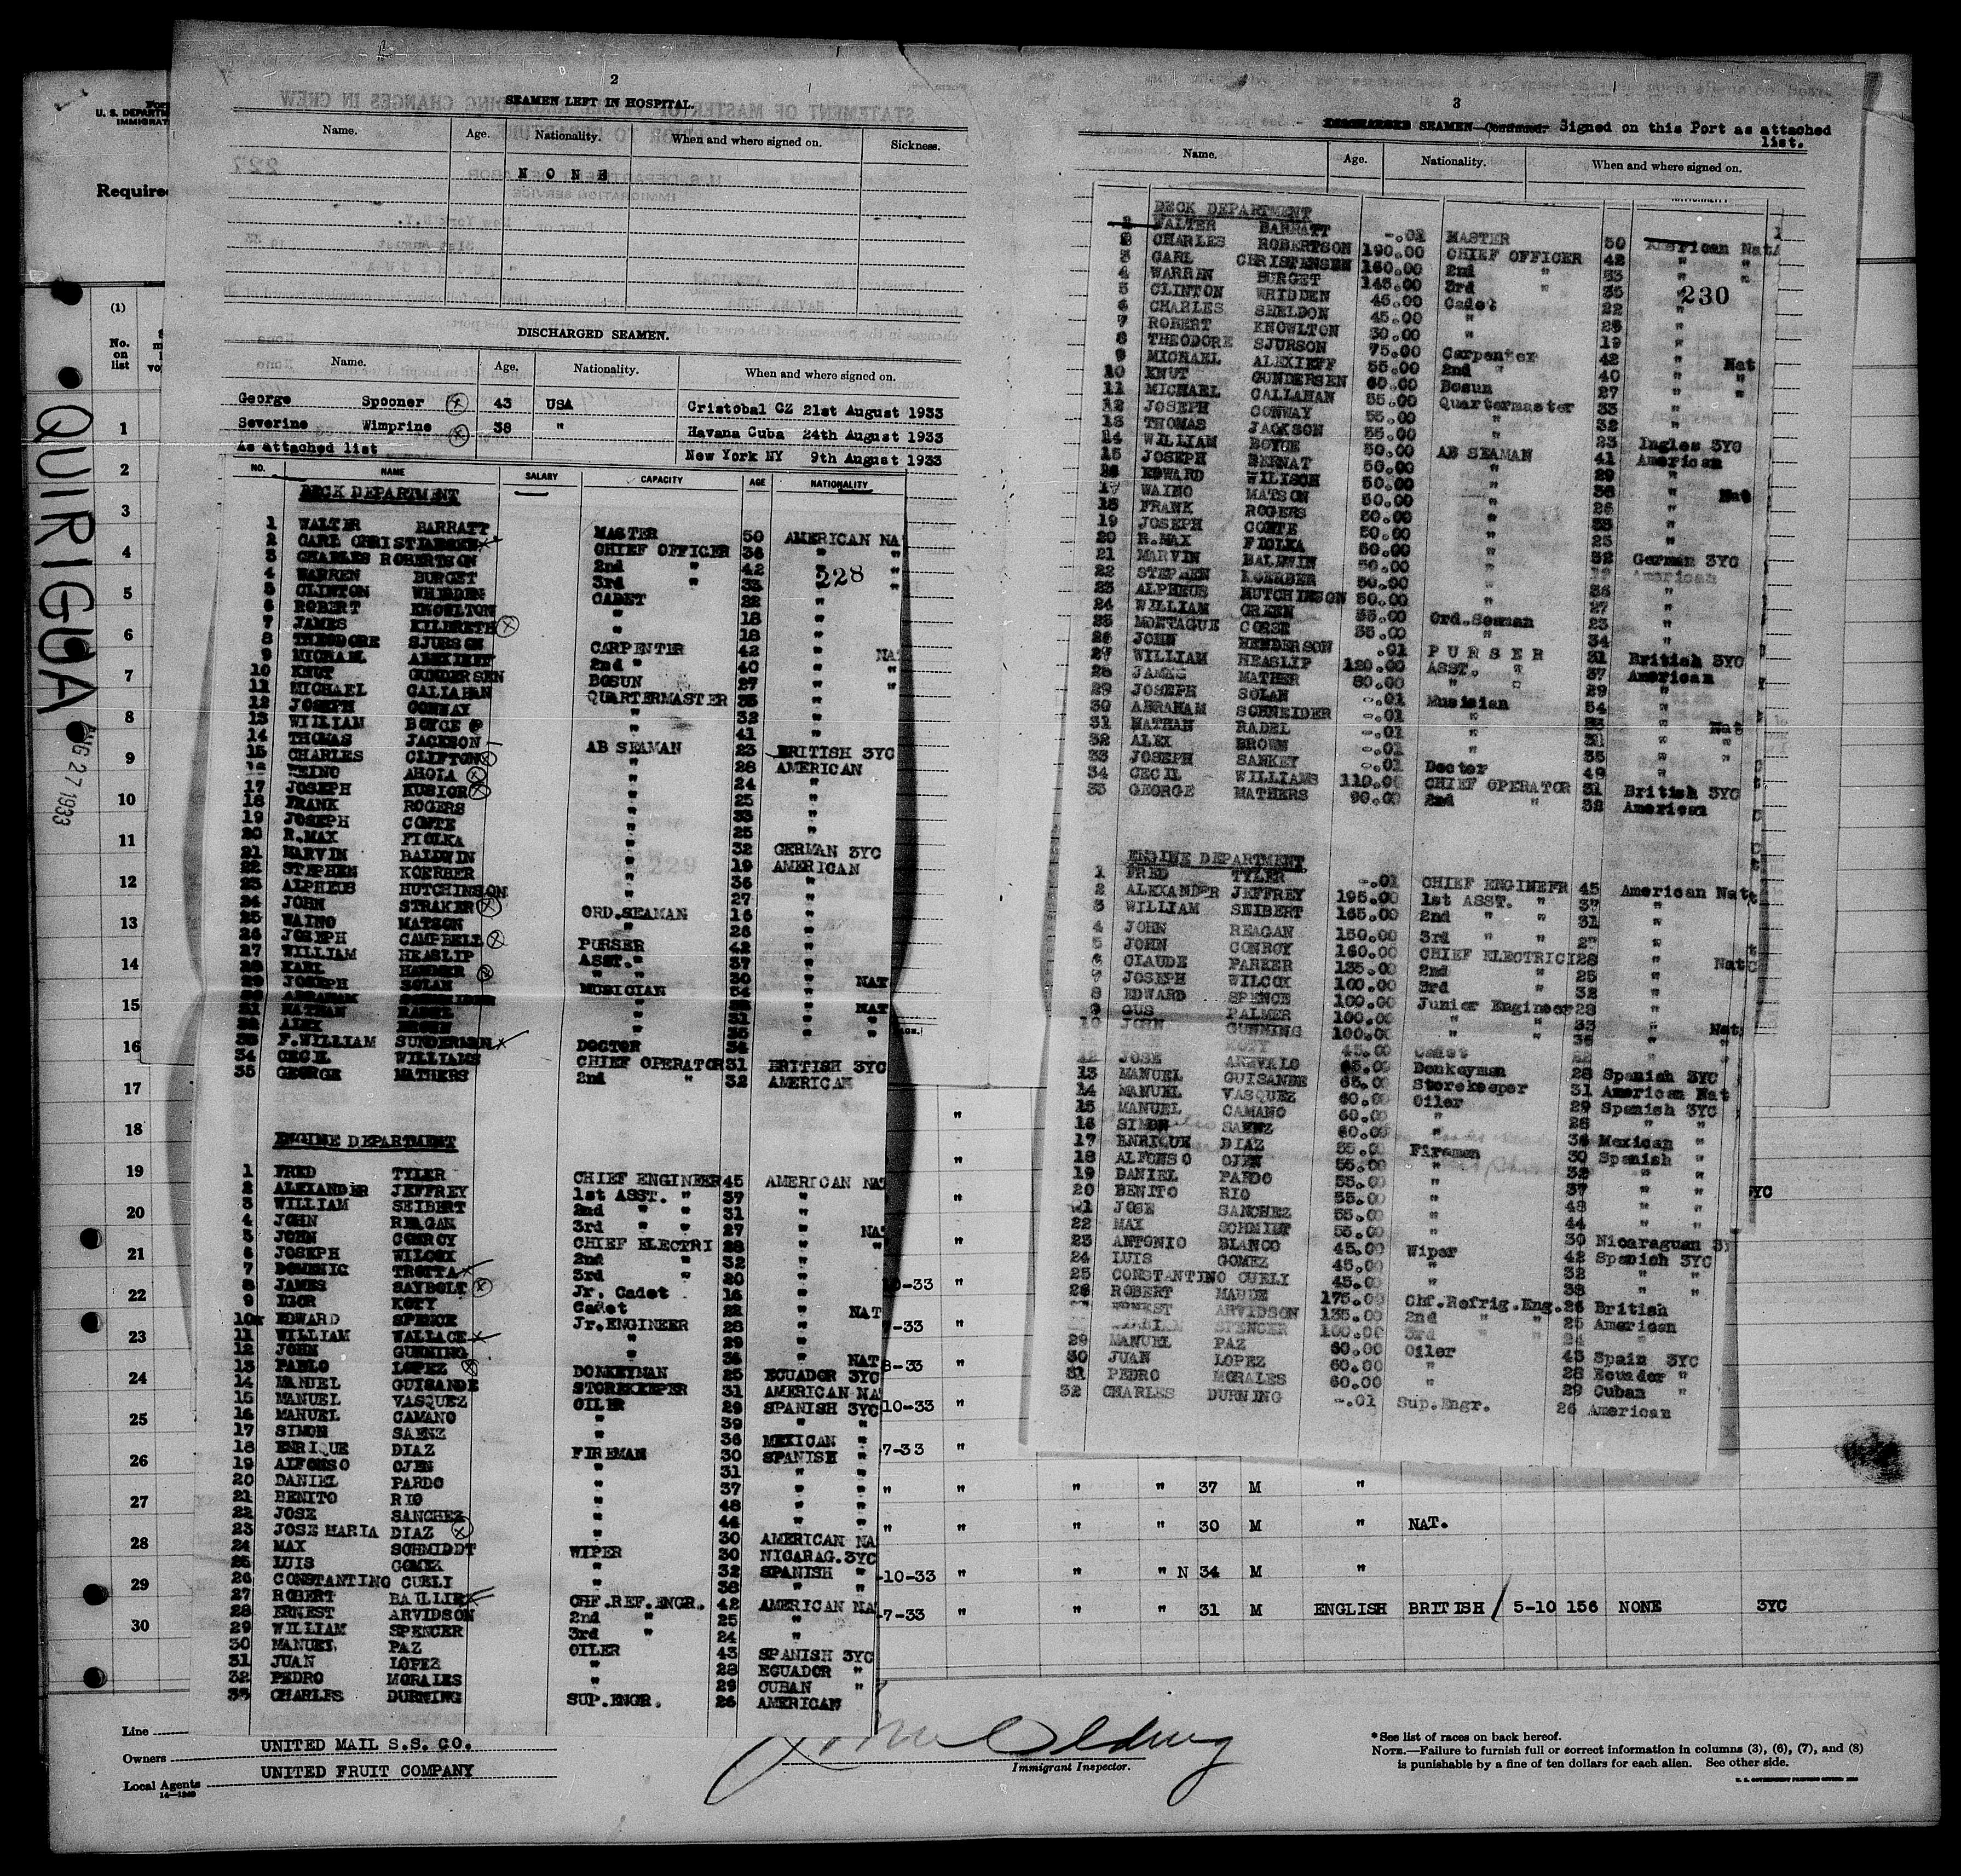 U. S. DEPARTM
IMMIGRAT
Require
(1)
No.
on
list
QUIRIGUA
AUG 27 1933
1
2
3
4
5
6
7
8
9
10
11
12
13
14
15
16
17
18
19
20
21
22
23
24
25
26
27
28
29
30
2
SEAMEN LEFT IN HOSPITAL.
Name. Age. Nationality. When and where signed on. Sickness.
NONE
DISCHARGED SEAMEN.
Name. Age. Nationality. When and where signed on.
George Spooner 43 USA Cristobal CZ 21st August 1933
Severine Wimprine 38 " Havana Cuba 24th August 1933
As attached list New York NY 9th August 1933
NO. NAME SALARY CAPACITY AGE NATIONALITY
DECK DEPARTMENT
228
1 WALTER BARRATT MASTER 50 AMERICAN NA
2 CARL CHRISTIANSEN CHIEF OFFICER 36 " "
3 CHARLES ROBERTSON 2nd " 42 " "
4 WARREN BURGET 3rd " 33 " "
5 CLINTON WHIDDEN CADET 22 "
6 ROBERT KNOWLTON " 18 "
7 JAMES KILBRETH " 18 "
8 THEODORE SJURSON CARPENTER 42 " NA
9 MICHAEL ALEXIEFF 2nd " 40 " "
10 KNUT GUNDERSEN BOSUN 27 " "
11 MICHAEL CALLAHAN QUARTERMASTER 33 "
12 JOSEPH CONWAY " 32 "
13 WILLIAM BOYCE " 41 "
14 THOMAS JACKSON AB SEAMAN 23 BRITISH 3YC
15 CHARLES CLIFTON " 28 AMERICAN
AHOLA " 24 "
17 JOSEPH KUSIOR " 25 "
18 FRANK ROGERS " 33 "
19 JOSEPH CONTE " 25 "
20 R.MAX FIOLKA " 32 GERMAN 3YC
21 MARVIN BALDWIN " 19 AMERICAN
22 STEPHEN KOERBER " 36 "
23 ALPHEUS HUTCHINSON " 27 "
24 JOHN STRAKER ORD.SEAMAN 16 "
25 WAINO MATSON " 26 "
26 JOSEPH CAMPBELL PURSER 42 "
27 WILLIAM HEASLIP ASST." 37 "
28 KARL " " 30 " NAT
29 JOSEPH SOLAN MUSICIAN 54 "
30 ABRAHAM SCHNEIDER " " NAT
31 NATHAN RADEL " 31 " "
32 ALEX BROWN " 35 " "
33 F.WILLIAM SUNDERMAN DOCTOR 34 "
34 CECIL WILLIAMS CHIEF OPERATOR 31 BRITISH 3YC
35 GEORGE MATHERS 2nd " 32 AMERICAN
ENGINE DEPARTMENT
1 FRED TYLER CHIEF ENGINEER 45 AMERICAN NAT
2 ALEXANDER JEFFREY 1st ASST. " 37 "
3 WILLIAM SEIBERT 2nd " " 31 "
4 JOHN REAGAN 3rd " " 27 " NAT
5 JOHN CONROY CHIEF ELECTRI 28 " "
6 JOSEPH WILCOX 2nd " 32 "
7 DOMENIC TROTTA 3rd " 20 "
8 JAMES SAYBOLT Jr. Cadet 16 "
9 IGOR KOTY Cadet 22 " NAT
10 EDWARD SPENCE Jr.ENGINEER 28 "
11 WILLIAM WALLACE " 29 "
12 JOHN GUNMING " 36 " NAT
13 PABLO LOPEZ DONKEYMAN 25 ECUADOR 3YC
14 MANUEL GUISANDE STOREKEEPER 31 AMERICAN NA
15 MANUEL VASQUEZ OILER 29 SPANISH 3YC
16 MANUEL CAMANO " 39 " "
17 SIMON SAENZ " 36 MEXICAN "
18 ENRIQUE DIAZ FIREMAN 30 SPANISH "
19 ALFONSO OJEN " 31 " "
20 DANIEL PARDO " 37 " "
21 BENITO RIO " 48 " "
22 JOSE SANCHEZ " 44 " "
23 JOSE MARIA DIAZ " 30 AMERICAN NA
24 MAX SCHMIDDT WIPER 30 NICARAG.3YC
25 LUIS GOMEZ " 32 SPANISH "
26 CONSTANTINO CUELI " 38 " "
27 ROBERT BAILLIE CHF.REF.ENGR. 42 AMERICAN NA
28 ERNEST ARVIDSON 2nd " 25 "
29 WILLIAM SPENCER 3rd " 24 "
30 MANUEL PAZ OILER 43 SPANISH 3YC
31 JUAN LOPEZ " 28 ECUADOR "
32 PEDRO MORALES " 29 CUBAN "
33 CHARLES DURNING SUP.ENGR. 26 AMERICAN
3
DISCHARGED SEAMEN—Continued. Signed on this Port as attached
list.
Name. Age. Nationality. When and where signed on.
DECK DEPARTMENT
230
WALTER BARRATT -.01 MASTER 50 American Nat
2 CHARLES ROBERTSON 190.00 CHIEF OFFICER 42 " "
3 CARL CHRISTENSEN 160.00 2nd " 33 " "
4 WARREN BURGET 145.00 3rd " 35 "
5 CLINTON WHIDDEN 45.00 Cadet 22 "
6 CHARLES SHELDON 45.00 " 25 "
7 ROBERT KNOWLTON 30.00 " 19 "
8 THEODORE SJURSON 75.00 Carpenter 42 " Nat
9 MICHAEL ALEXIEFF 55.00 2nd " 40 " "
10 KNUT GUNDERSEN 60.00 Bosun 27 " "
11 MICHAEL CALLAHAN 55.00 Quartermaster 33 "
12 JOSEPH CONWAY 55.00 " 32 "
13 THOMAS JACKSON 55.00 " 23 Ingles 3YC
14 WILLIAM BOYCE 50.00 AB SEAMAN 41 American
15 JOSEPH BERNAT 50.00 " 29 "
EDWARD WILISCH 50.00 " 38 " Nat
17 WAINO MATSON 50.00 " 26 "
18 FRANK ROGERS 50.00 " 33 "
19 JOSEPH CONTE 50.00 " 25 "
20 R.MAX FIOLKA 50.00 " 32 German 3YC
21 MARVIN BALDWIN 50.00 " American
22 STEPHEN KOERBER 50.00 " 36 "
23 ALPHEUS HUTCHINSON 50.00 " 27 "
24 WILLIAM GREEN 35.00 Ord.Seaman 23 "
25 MONTAGUE CORSE 35.00 " 34 "
26 JOHN HENDERSON .01 PURSER 31 British 3YC
27 WILLIAM HEASLIP 120.00 ASST. " 37 American
28 JAMES MATHER 80.00 " " 29 "
29 JOSEPH SOLAN -.01 Musician 54 "
30 ABRAHAM SCHNEIDER -.01 " " Nat
31 NATHAN RADEL -.01 " 31 " "
32 ALEX BROWN -.01 " 35 " "
33 JOSEPH SANKEY -.01 Doctor 49 "
34 CECIL WILLIAMS 110.00 CHIEF OPERATOR 31 British 3YC
35 GEORGE MATHERS 90.00 2nd " 32 American
ENGINE DEPARTMENT
1 FRED TYLER -.01 CHIEF ENGINEER 45 American Nat
2 ALEXANDER JEFFREY 195.00 1st ASST. " 37 "
3 WILLIAM SEIBERT 165.00 2nd " " 31 "
4 JOHN REAGAN 150.00 3rd " " 27 "
5 JOHN CONROY 160.00 CHIEF ELECTRICI 28 " Nat
6 CLAUDE PARKER 135.00 2nd " 25 "
7 JOSEPH WILCOX 100.00 3rd " 32 "
8 EDWARD SPENCE 100.00 Junior Engineer 28 "
9 GUS PALMER 100.00 " " 33 " Nat
10 JOHN GUNMING 100.00 " " 36 " "
KOTY 45.00 Cadet 22 " "
12 JOSE AREVALO 65.00 Donkeyman 28 Spanish 3YC
13 MANUEL GUISANDE 65.00 Storekeeper 31 American Nat
14 MANUEL VASQUEZ 60.00 Oiler 29 Spanish 3YC
15 MANUEL CAMANO 60.00 " " "
16 SIMON SAENZ 60.00 " 36 Mexican "
17 ENRIQUE DIAZ 55.00 Fireman 30 Spanish "
18 ALFONSO OJEN 55.00 " 32 " "
19 DANIEL PARDO 55.00 " 37 " "
20 BENITO RIO 55.00 " 48 " "
21 JOSE SANCHEZ 55.00 " 44 " "
22 MAX SCHMIDT 55.00 " 30 Nicaraguan 3Y
23 ANTONIO BLANCO 45.00 Wiper 42 Spanish 3YC
24 LUIS GOMEZ 45.00 " 32 " "
25 CONSTANTINO CUELI 45.00 " 38 " "
26 ROBERT MAUDE 175.00 Chf.Refrig.Eng. 26 British
ARVIDSON 135.00 2nd " " 25 American
SPENCER 100.00 3rd " " 24 "
29 MANUEL PAZ 60.00 Oiler 43 Spain 3YC
30 JUAN LOPEZ 60.00 " 28 Ecuador "
31 PEDRO MORALES 60.00 " 29 Cuban "
32 CHARLES DURNING -.01 Sup.Engr. 26 American
"
"
" 3YC
"
10-33 "
7-33 "
8-33 "
10-33 "
7-33 "
" " " " 37 M "
" " " " 30 M " NAT.
-10-33 " " " N 34 M "
-7-33 " " " 31 M ENGLISH BRITISH / 5-10 156 NONE 3YC
Line
Owners UNITED MAIL S.S. CO.
Local Agents UNITED FRUIT COMPANY
14—1240
Immigrant Inspector.
* See list of races on back hereof.
NOTE.—Failure to furnish full or correct information in columns (3), (6), (7), and (8)
is punishable by a fine of ten dollars for each alien. See other side.